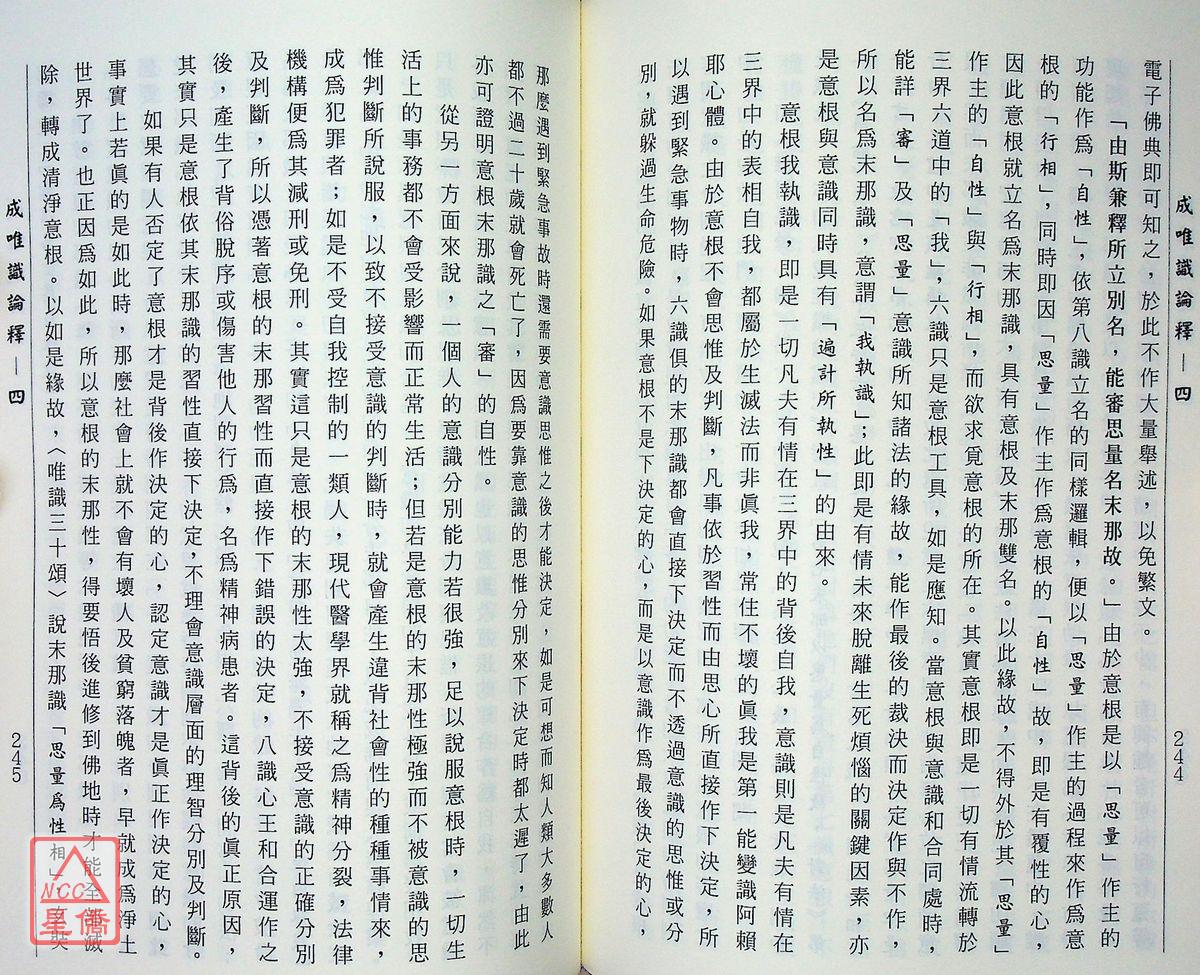 成唯識論釋—四
244
電子佛典即可知之，於此不作大量舉述，以免繁文。
「由斯兼釋所立別名，能審思量名末那故。」由於意根是以「思量」作主的
功能作為「自性」，依第八識立名的同樣邏輯，便以「思量」作主的過程來作為意
根的「行相」，同時即因「思量」作主作為意根的「自性」故，即是有覆性的心，
因此意根就立名為末那識，具有意根及末那雙名。以此緣故，不得外於其「思量」
作主的「自性」與「行相」，而欲求覓意根的所在。其實意根即是一切有情流轉於
三界六道中的「我」，六識只是意根工具，如是應知。當意根與意識和合同處時，
能詳「審」及「思量」意識所知諸法的緣故，能作最後的裁決而決定作與不作，
所以名為末那識，意謂「我執識」；此即是有情未來脫離生死煩惱的關鍵因素，亦
是意根與意識同時具有「遍計所執性」的由來。
意根我執識，即是一切凡夫有情在三界中的背後自我，意識則是凡夫有情在
三界中的表相自我，都屬於生滅法而非真我，常住不壞的真我是第一能變識阿賴
耶心體。由於意根不會思惟及判斷，凡事依於習性而由思心所直接作下決定，所
以遇到緊急事物時，六識俱的末那識都會直接下決定而不透過意識的思惟或分
別，就躲過生命危險。如果意根不是下決定的心，而是以意識作為最後決定的心，
那麼遇到緊急事故時還需要意識思惟之後才能決定，如是可想而知人類大多數人
都不過二十歲就會死亡了，因為要靠意識的思惟分別來下決定時都太遲了，由此
亦可證明意根末那識之「審」的自性。
從另一方面來說，一個人的意識分別能力若很強，足以說服意根時，一切生
活上的事務都不會受影響而正常生活；但若是意根的末那性極強而不被意識的思
惟判斷所說服，以致不接受意識的判斷時，就會產生違背社會性的種種事情來，
成為犯罪者；如是不受自我控制的一類人，現代醫學界就稱之為精神分裂，法律
機構便為其減刑或免刑。其實這只是意根的末那性太強，不接受意識的正確分別
及判斷，所以憑著意根的末那習性而直接作下錯誤的決定，八識心王和合運作之
後，產生了背俗脫序或傷害他人的行為，名為精神病患者。這背後的真正原因，
其實只是意根依其末那識的習性直接下決定，不理會意識層面的理智分別及判斷。
如果有人否定了意根才是背後作決定的心，認定意識才是真正作決定的心，
事實上若真的是如此時，那麼社會上就不會有壞人及貧窮落魄者，早就成為淨土
世界了。也正因為如此，所以意根的末那性，得要悟後進修到佛地時才能全部滅
除，轉成清淨意根。以如是緣故，〈唯識三十頌〉說末那識「思量為性相」，玄奘
成唯識論釋—四
245
NCC
星僑